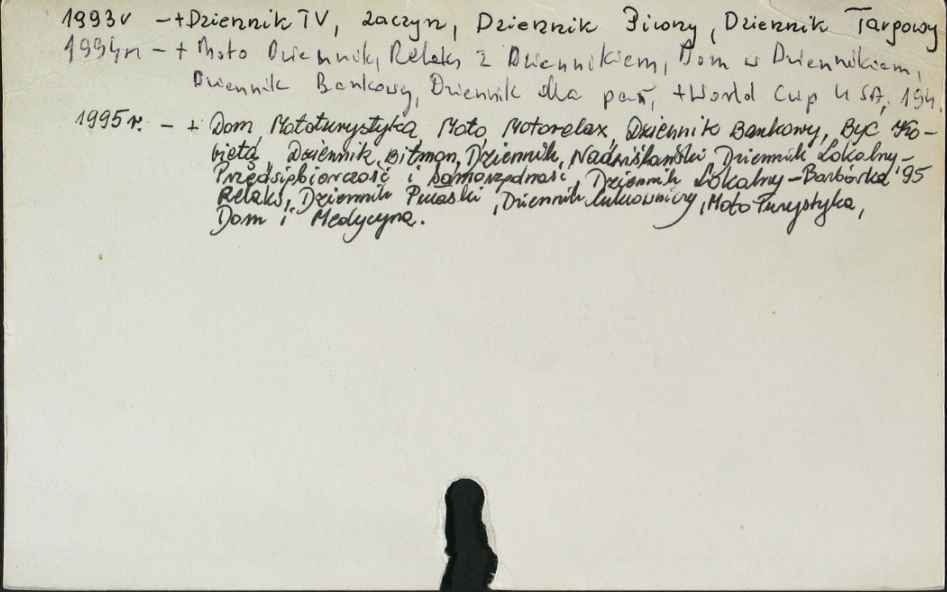 1993r - + Dziennik TV, Zaczyn, Dziennik Zimowy, Dziennik Targowy
1994r - + Moto Dziennik, Relaks z Dziennikiem, Dom w Dziennikiem,
Dziennik Bankowy, Dziennik dla pań, + World Cup USA, 1994,
1995 r. - + Dom, Mototurystyka, Moto, Motorelax, Dziennik Bankowy, Być Ko-
bietą, Dziennik, Bitmon, Dziennik, Nadwiślański, Dziennik Lokalny -
Przedsiębiorczość i Samorządność, Dziennik Lokalny - Barbórka '95
Relaks, Dziennik, Dziennik, Moto Turystyka,
Dom i Medycyna.